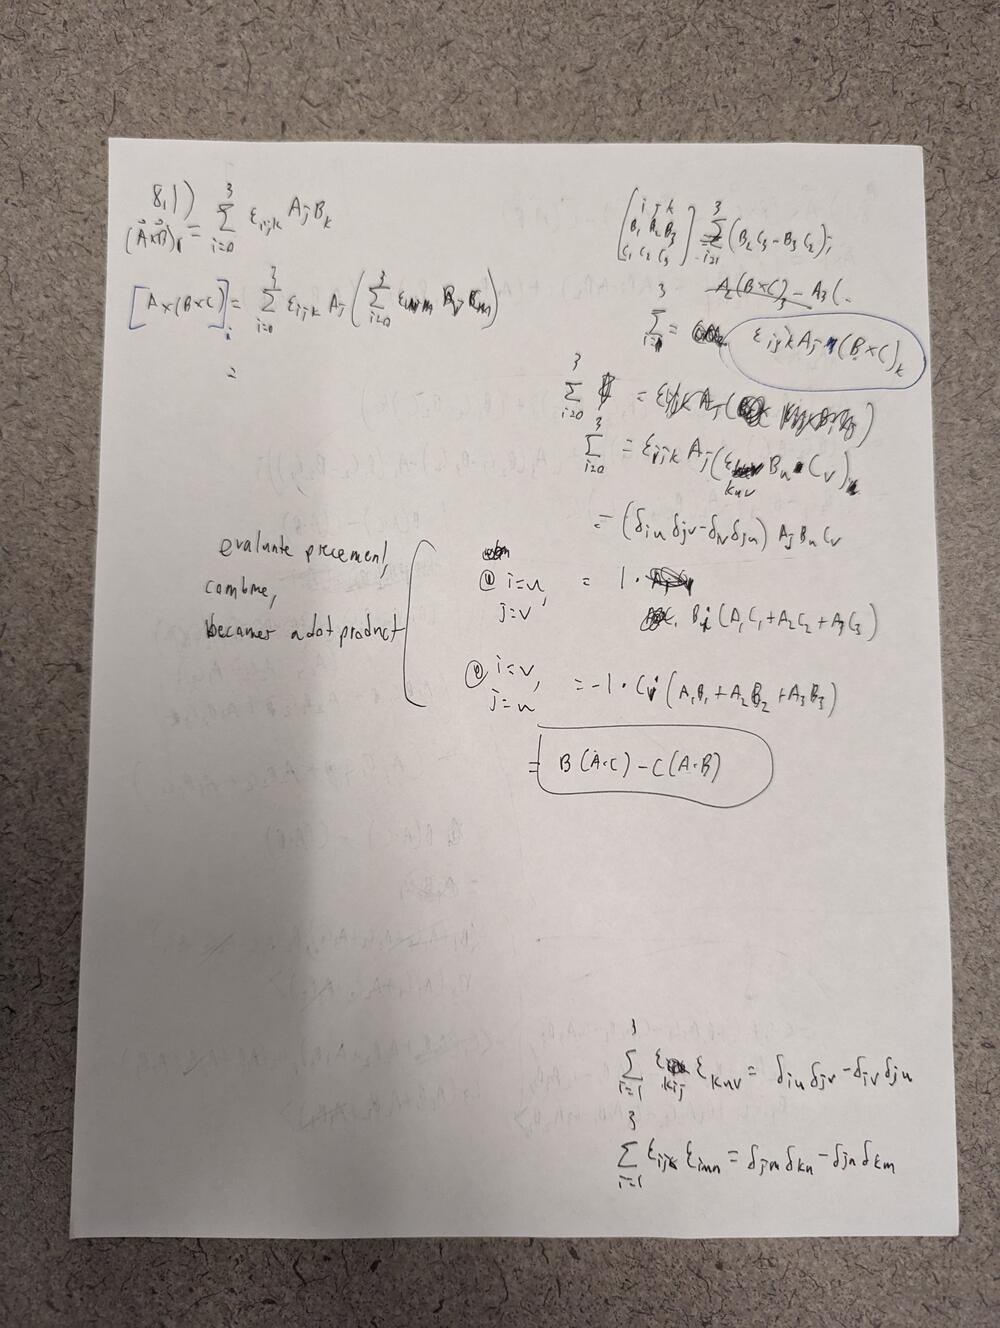 8,1)
(A⃗×B⃗)ᵢ = ∑_{i=0}^{3} ε_{ijk} A_j B_k
[A×(B×C)]ᵢ = ∑_{i=0}^{3} ε_{ijk} A_j (∑_{i=0}^{3}
=
[i j k
B₁ B₂ B₃
C₁ C₂ C₃] = ∑_{i=1}^{3} (B₂C₃ − B₃C₂)ᵢ
A₂(B×C)₃ − A₃(.
∑^{3} = ε_{ijk} A_j (B×C)_k
∑_{i=0}^{3} = ε_{ijk} A_j (
∑_{i=0}^{3} = ε_{ijk} A_j (ε_{kuv} B_u C_v)
= (δ_{iu} δ_{jv} − δ_{iv} δ_{ju}) A_j B_u C_v
evaluate piecemeal,
combine,
becomes a dot product
@ i=u, = 1 ·
j=v
Bᵢ (A₁C₁ + A₂C₂ + A₃C₃)
@ i=v,
j=u = −1 · Cᵢ (A₁B₁ + A₂B₂ + A₃B₃)
= B(A·C) − C(A·B)
∑_{i=1}^{3} ε_{kij} ε_{kuv} = δ_{iu} δ_{jv} − δ_{iv} δ_{ju}
∑_{i=1}^{3} ε_{ijk} ε_{imn} = δ_{jm} δ_{kn} − δ_{jn} δ_{km}